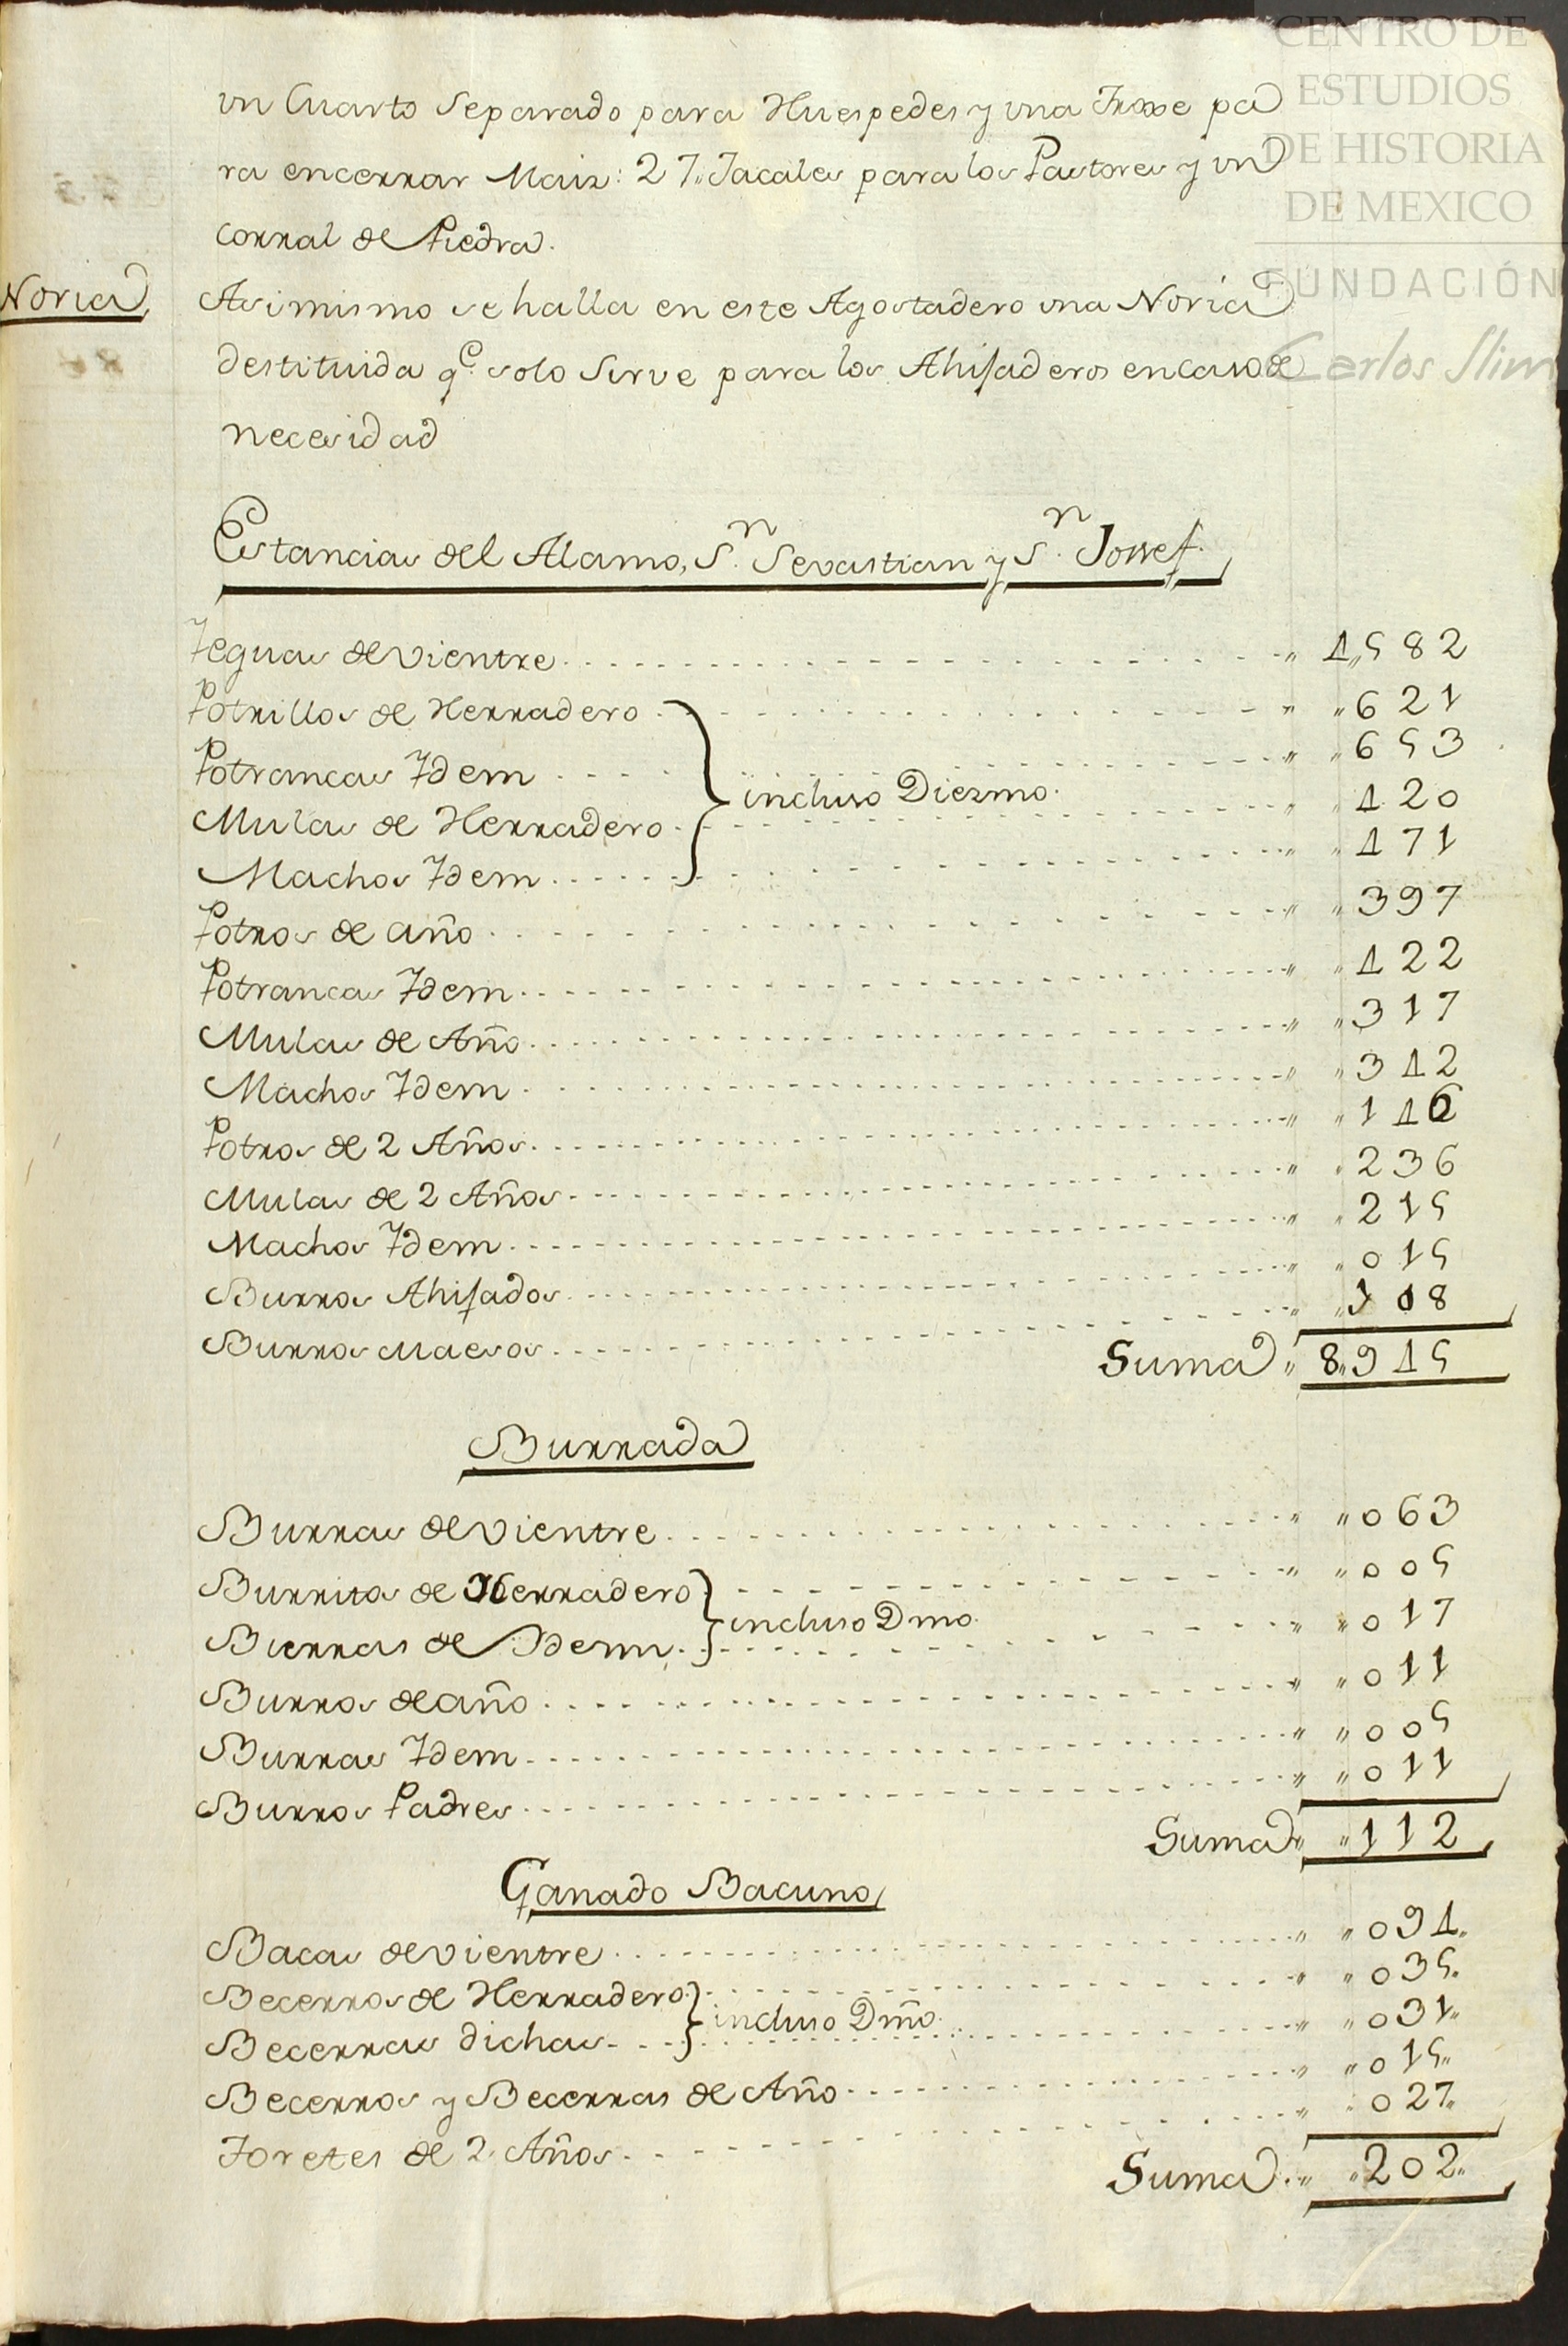 Noria
un Cuarto Separado para Huespedes y una Troxe pa
ra encerrar Maiz: 27,, Jacales para los Pastores y un
corral de Piedra.
Asimismo se halla en este Agostadero una Noria
destituida q.e solo Sirve para los Ahijaderos en caso de
necesidad
Estancias del Alamo, S.n Sevastian y S.n Jossef.
Yeguas de vientre ,, 4,,582
Potrillos de Herradero ,, ,,621
Potrancas Ydem ,, ,,653
incluso Diezmo.
Mulas de Herradero ,, ,,420
Machos Ydem ,, ,,471
Potros de año ,, ,,397
Potrancas Ydem ,, ,,422
Mulas de Año ,, ,,317
Machos Ydem ,, ,,342
Potros de 2 Años ,, ,,146
Mulas de 2 Años ,, ,,236
Machos Ydem ,, ,,215
Burros Ahijados ,, ,,015
Burros Maesos ,, ,,108
Suma ,, 8,,945
Burrada
Burras de vientre ,, ,,063
Burritos de Herradero ,, ,,005
incluso Dmo.
Burras de Ydem ,, ,,017
Burros de año ,, ,,011
Burras Ydem ,, ,,005
Burros Padres ,, ,,011
Suma ,, ,,112
Ganado Bacuno
Bacas de vientre ,, ,,094,,
Becerros de Herradero ,, ,,035,,
incluso Dm̃o.
Becerras dichas ,, ,,031,,
Becerros y Becerras de Año ,, ,,015,,
Toretes de 2 Años ,, ,,027,,
Suma ,, ,,202,,
CENTRO DE
ESTUDIOS
DE HISTORIA
DE MEXICO
FUNDACIÓN
Carlos Slim